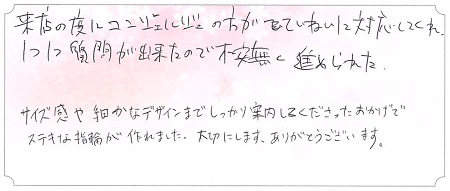 来店の度にコンシェルジュの方がていねいに対応してくれ
1つ1つ質問が出来たので不安無く進められた.
サイズ感や細かなデザインまでしっかり案内してくださったおかげで
ステキな指輪が作れました. 大切にします、ありがとうございます。